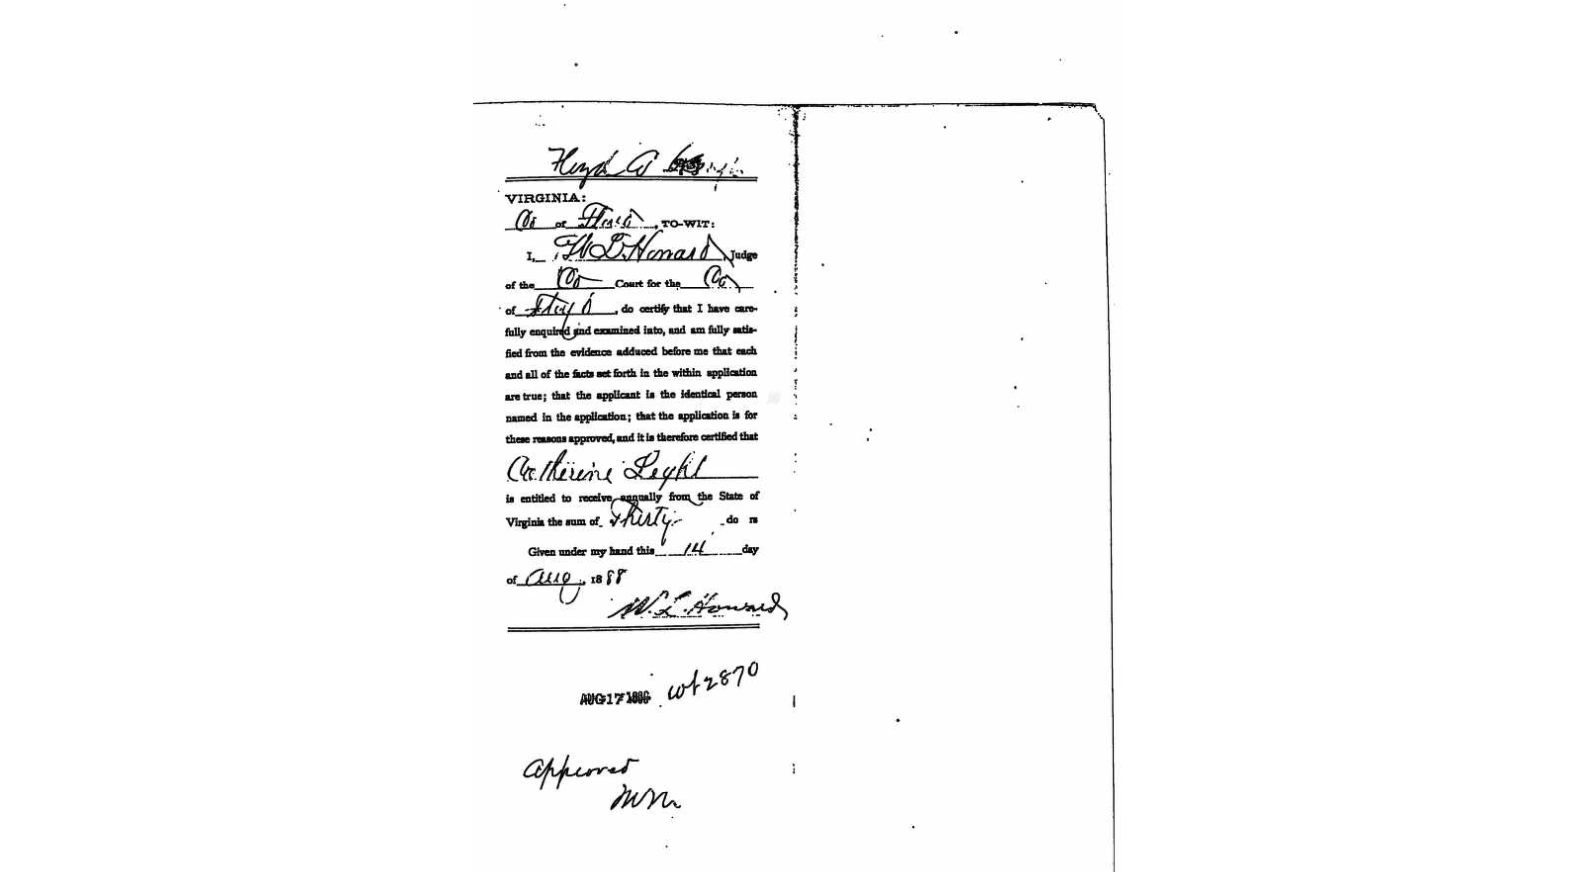 Floyd Co Virginia
VIRGINIA:
Co of Floyd, TO-WIT:
I, W L Howard, Judge
of the Co Court for the Co
of Floyd, do certify that I have care-
fully enquired and examined into, and am fully satis-
fied from the evidence adduced before me that each
and all of the facts set forth in the within application
are true; that the applicant is the identical person
named in the application; that the application is for
these reasons approved, and it is therefore certified that
Catherine
is entitled to receive annually from the State of
Virginia the sum of Thirty do rs
Given under my hand this 14 day
of Aug, 1888
W. L. Howard
AUG 17 1888 wt 2870
Approved